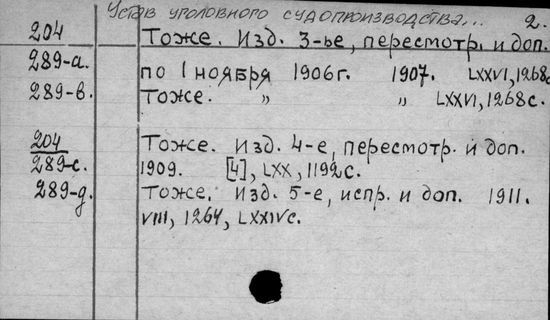 Устав уголовного судопроизводства... 2.
204 Тоже. Изд. 3-ье, пересмотр. и доп.
289-а. по 1 ноября 1906г. 1907. LXXVI, 1268с
289-в. Тоже. " " LXXVI, 1268с.
204 Тоже. Изд. 4-е, пересмотр. и доп.
289-с. 1909. [4], LXX, 1192с.
289-д. Тоже. Изд. 5-е, испр. и доп. 1911.
VIII, 1264, LXXIVс.